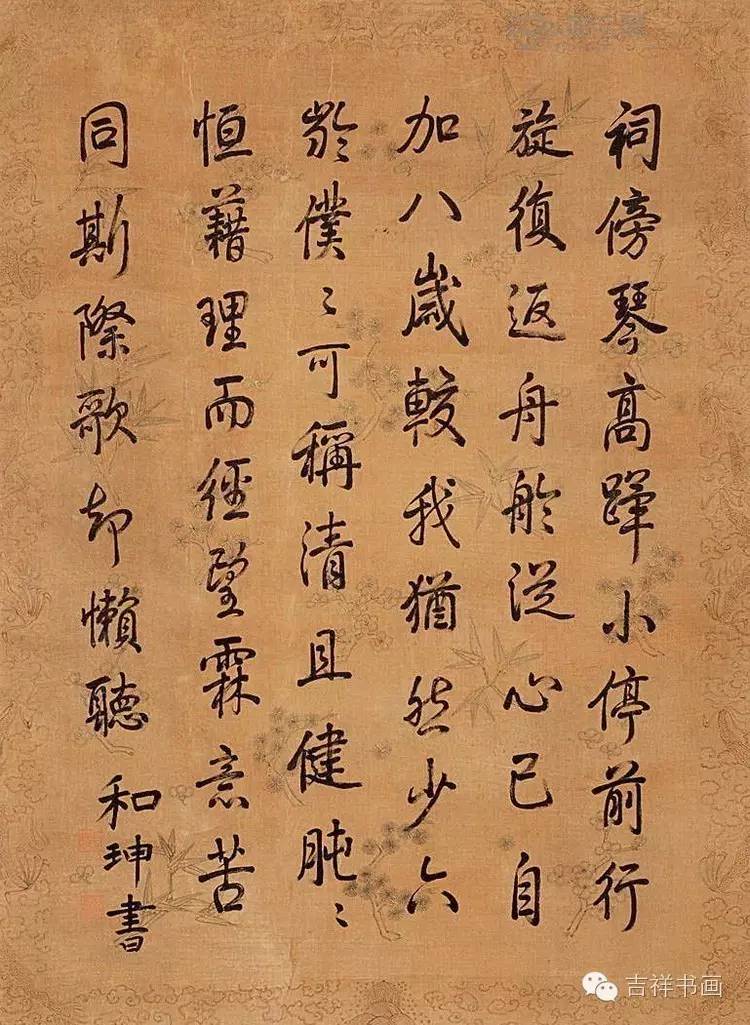 祠傍琴高蹕小停前行
旋復返舟舲從心已自
加八歲較我猶然少六
齡僕〻可稱清且健肫〻
恒藉理而經望霖意苦
同斯際歌却懶聽
和珅書
吉祥书画